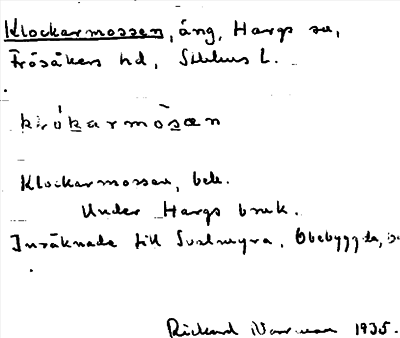 Klockarmossen, äng, Hargs sn,
Frösåkers hd, Sthlms L.
klókarmòsæn
Klockarmossen, beb.
Under Hargs bruk.
Inräknade till Svalmyra. Obebyggda,
Rickard 1935.